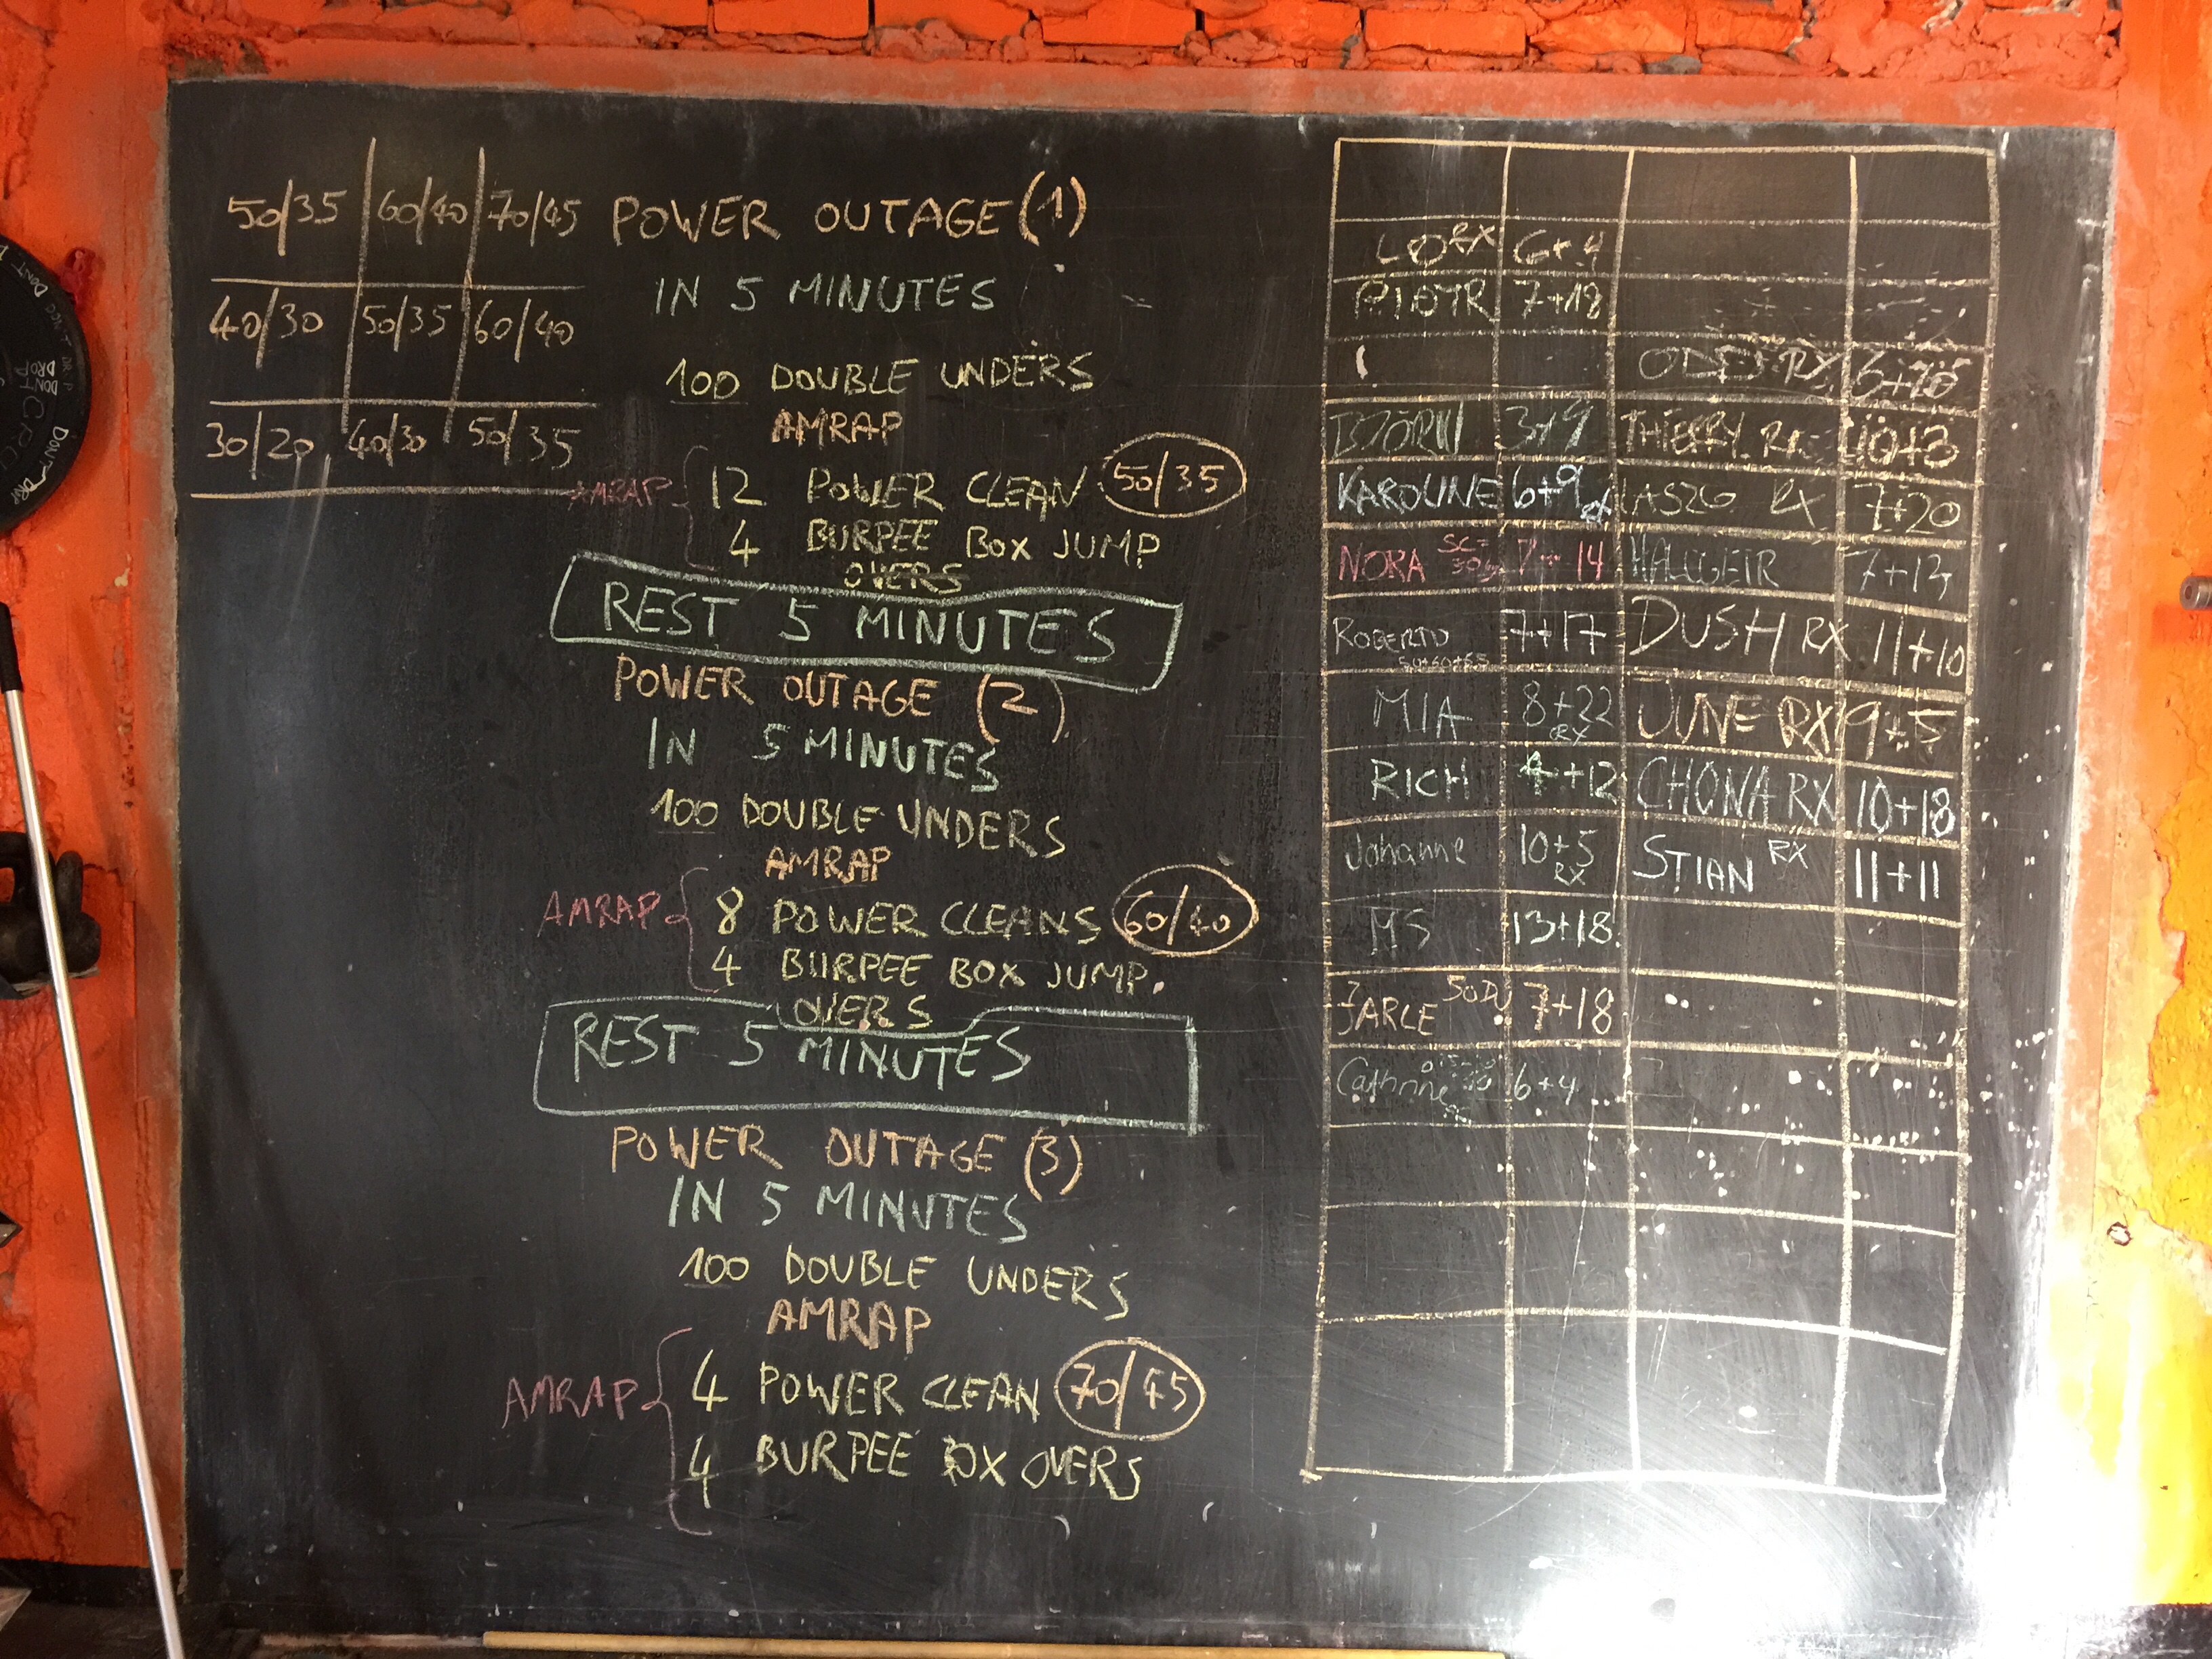 50/35 60/40 70/45
40/30 50/35 60/40
30/20 40/30 50/35
POWER OUTAGE (1)
IN 5 MINUTES
100 DOUBLE UNDERS
AMRAP
AMRAP 12 POWER CLEAN 50/35
4 BURPEE BOX JUMP
OVERS
REST 5 MINUTES
POWER OUTAGE (2)
IN 5 MINUTES
100 DOUBLE UNDERS
AMRAP
AMRAP 8 POWER CLEANS 60/40
4 BURPEE BOX JUMP.
OVERS
REST 5 MINUTES
POWER OUTAGE (3)
IN 5 MINUTES
100 DOUBLE UNDERS
AMRAP
AMRAP 4 POWER CLEAN 70/45
4 BURPEE BOX OVERS
LO RX 6+4
PIOTR 7+18
RX
BJÖRN 3+9 THIERRY
KAROLINE 6+9 RX LASZO RX 7+20
NORA 7+14 HALLGEIR
ROBERTO 7+17 DUSH RX 11+10
MIA 8+22 RX JUNE RX 9+5
RICH +12 CHONA RX 10+18
Johanne 10+5 RX STIAN RX 11+11
MS 13+18
JARLE 50DU 7+18
Cathrine 6+4
DON'T
DROP
DON'T